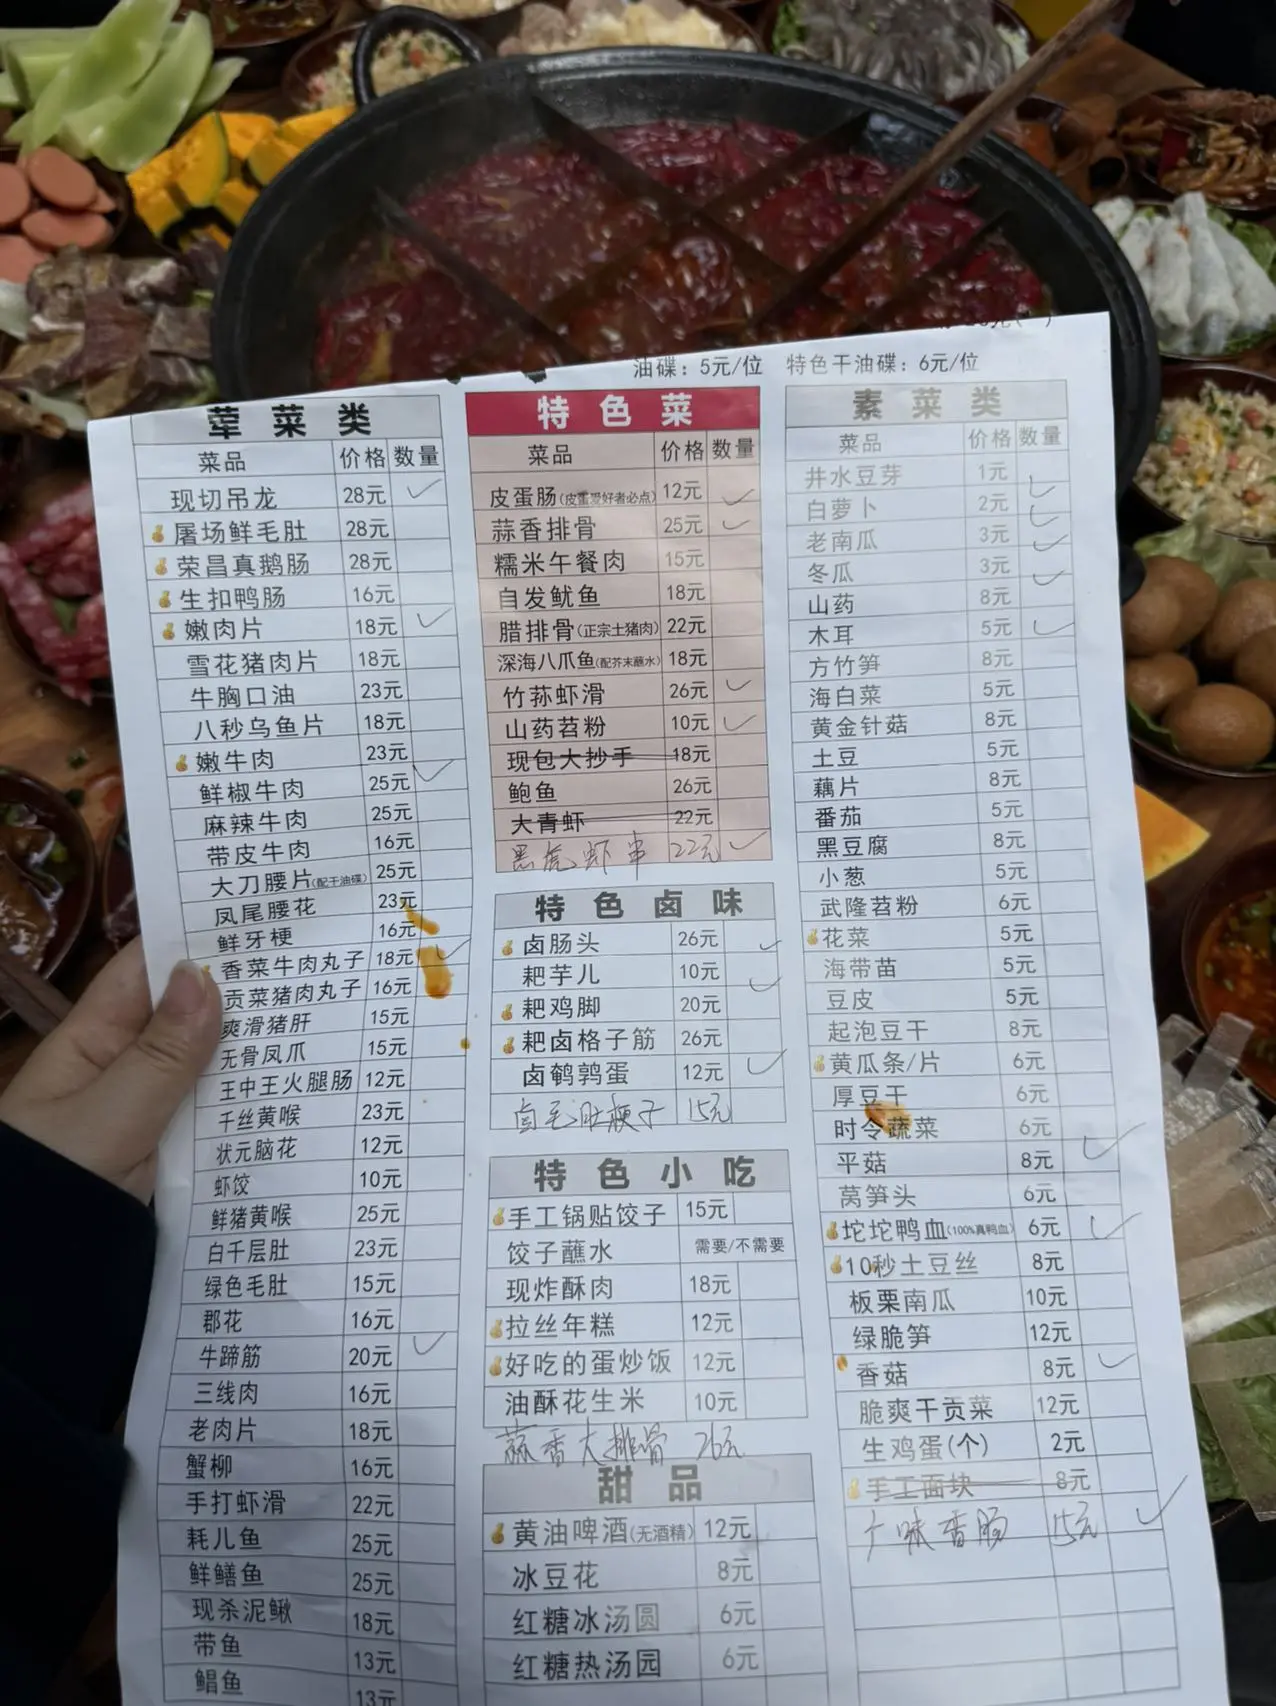 油碟：5元/位 特色干油碟：6元/位
荤菜类
菜品 价格 数量
现切吊龙 28元
屠场鲜毛肚 28元
荣昌真鹅肠 28元
生扣鸭肠 16元
嫩肉片 18元
雪花猪肉片 18元
牛胸口油 23元
八秒乌鱼片 18元
嫩牛肉 23元
鲜椒牛肉 25元
麻辣牛肉 25元
带皮牛肉 16元
大刀腰片(配干油碟) 25元
凤尾腰花 23元
鲜牙梗 16元
香菜牛肉丸子 18元
贡菜猪肉丸子 16元
爽滑猪肝 15元
无骨凤爪 15元
王中王火腿肠 12元
千丝黄喉 23元
状元脑花 12元
虾饺 10元
鲜猪黄喉 25元
白千层肚 23元
绿色毛肚 15元
郡花 16元
牛蹄筋 20元
三线肉 16元
老肉片 18元
蟹柳 16元
手打虾滑 22元
耗儿鱼 25元
鲜鳝鱼 25元
现杀泥鳅 18元
带鱼 13元
鲳鱼 13元
特色菜
菜品 价格 数量
皮蛋肠(皮蛋爱好者必点) 12元
蒜香排骨 25元
糯米午餐肉 15元
自发鱿鱼 18元
腊排骨(正宗土猪肉) 22元
深海八爪鱼(配芥末蘸水) 18元
竹荪虾滑 26元
山药苕粉 10元
现包大抄手 18元
鲍鱼 26元
大青虾 22元
黑虎虾串 22元
特色卤味
卤肠头 26元
耙芋儿 10元
耙鸡脚 20元
耙卤格子筋 26元
卤鹌鹑蛋 12元
卤毛肚梗子 15元
特色小吃
手工锅贴饺子 15元
饺子蘸水 需要/不需要
现炸酥肉 18元
拉丝年糕 12元
好吃的蛋炒饭 12元
油酥花生米 10元
蒜香大排骨 26元
甜品
黄油啤酒(无酒精) 12元
冰豆花 8元
红糖冰汤圆 6元
红糖热汤园 6元
素菜类
菜品 价格 数量
井水豆芽 1元
白萝卜 2元
老南瓜 3元
冬瓜 3元
山药 8元
木耳 5元
方竹笋 8元
海白菜 5元
黄金针菇 8元
土豆 5元
藕片 8元
番茄 5元
黑豆腐 8元
小葱 5元
武隆苕粉 6元
花菜 5元
海带苗 5元
豆皮 5元
起泡豆干 8元
黄瓜条/片 6元
厚豆干 6元
时令蔬菜 6元
平菇 8元
莴笋头 6元
坨坨鸭血(100%真鸭血) 6元
10秒土豆丝 8元
板栗南瓜 10元
绿脆笋 12元
香菇 8元
脆爽干贡菜 12元
生鸡蛋(个) 2元
手工面块 8元
广味香肠 15元